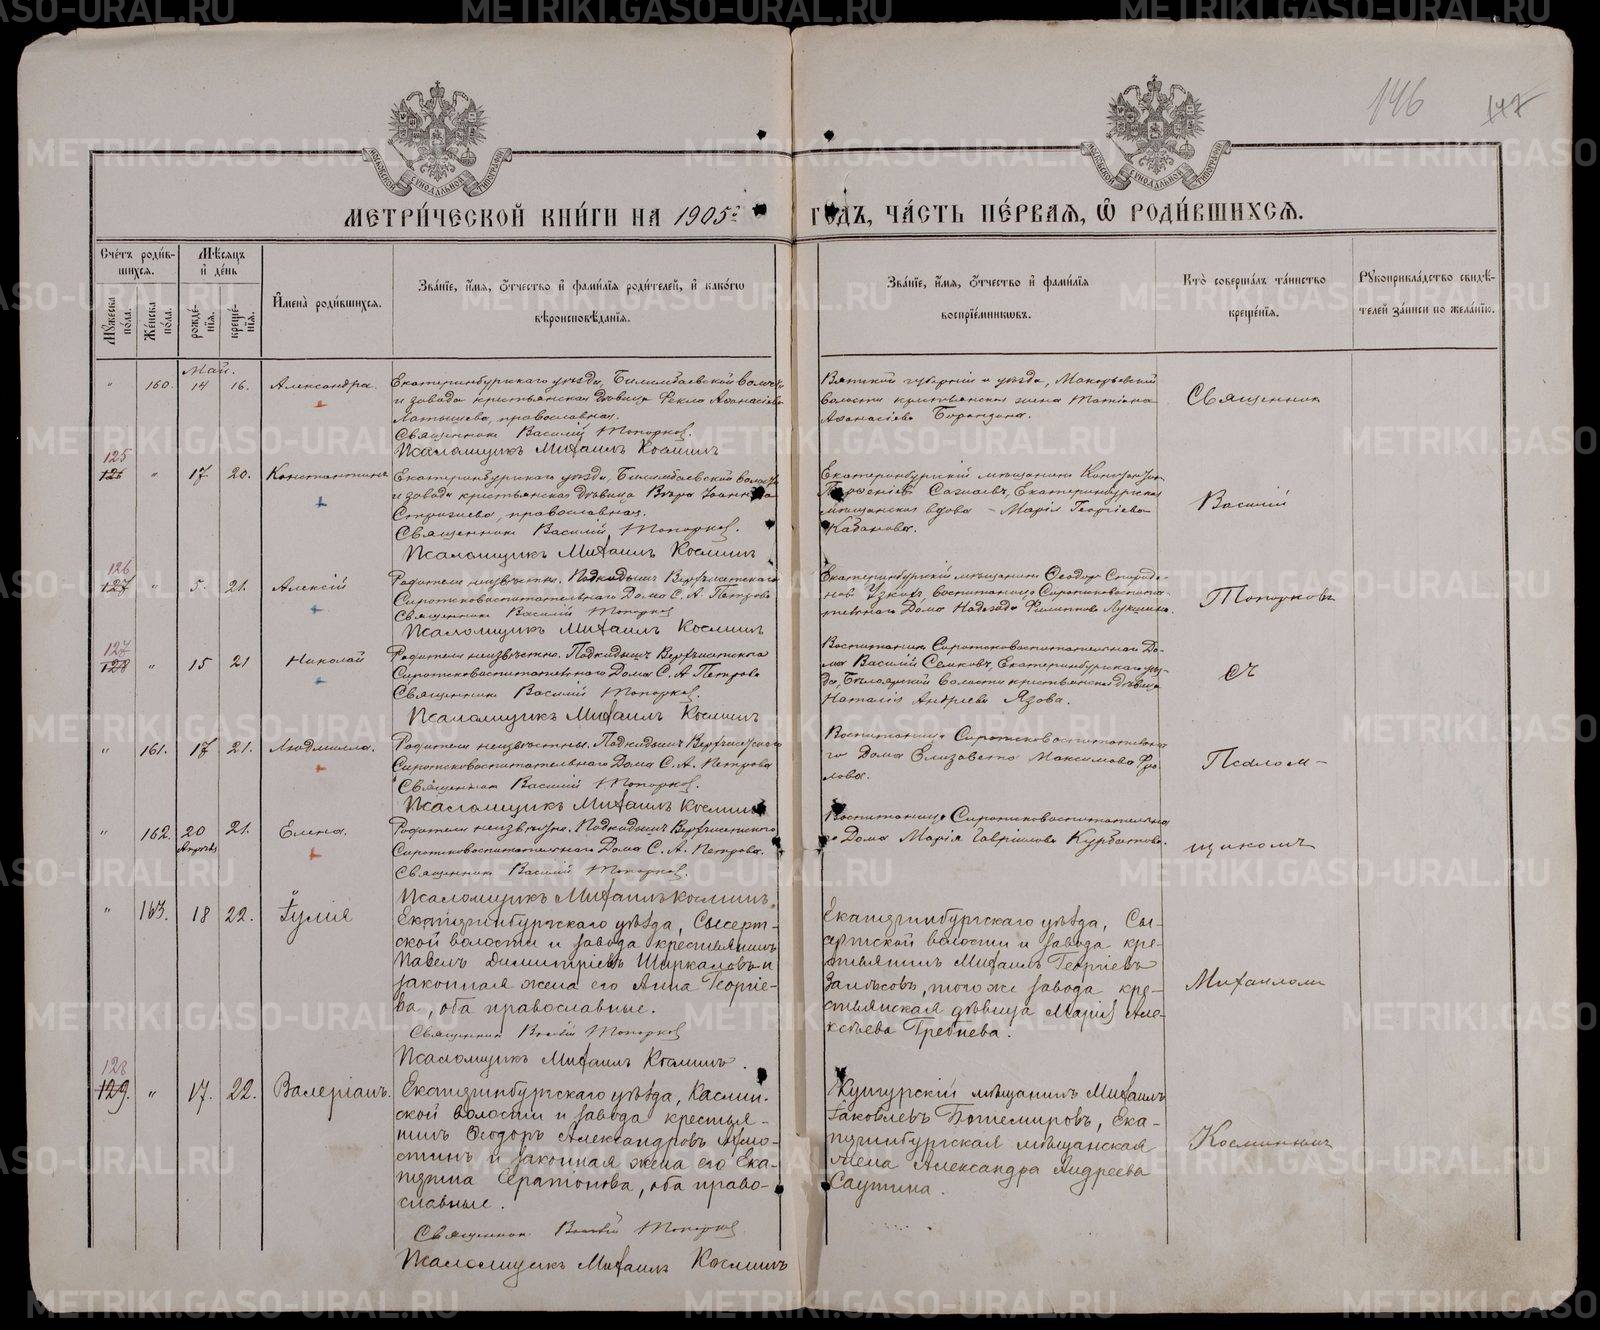 METRIKI.GASO-URAL.RU
146
147
МОСКОВСКОЙ СѴНОДАЛЬНОЙ ТИПОГРАФІИ
МОСКОВСКОЙ СѴНОДАЛЬНОЙ ТИПОГРАФІИ
МЕТРИ́ЧЕСКОЙ КНИ́ГИ НА 1905 г. ГОДЪ, ЧА́СТЬ ПЕ́РВАЯ, Ѡ РОДИ́ВШИХСЯ.
Сче́тъ роди́в-
шихся.
Мѣ́сяцъ
и де́нь
Му́жеска по́ла.
Же́нска по́ла.
рожде́нія.
креще́нія.
Имена̀ роди́вшихся.
Зва́ніе, и́мя, о́тчество и фами́лія роди́телей, и како́гѡ
вѣроисповѣ́данія.
Зва́ніе, и́мя, о́тчество и фами́лія
воспріе́мниковъ.
Кто̀ соверша́лъ та́инство
креще́нія.
Рукоприкла́дство свидѣ́-
телей за́писи по жела́нію.
Май.
" 160. 14 16. Александра.
Екатеринбургскаго уѣзда, Билимбаевской волости
и завода крестьянская дѣвица Фекла Аѳанасіева
Латышева, православная.
Священникъ Василій Топорковъ.
Псаломщикъ Михаилъ Косминъ
Вятской губерніи и уѣзда, Макарьевской
волости крестьянская жена Татіана
Аѳанасіева
Священник
125
126 " 17 20. Константинъ
Екатеринбургскаго уѣзда, Билимбаевской волости
и завода крестьянская дѣвица Вѣра Іоаннова
православная.
Священникъ Василій Топорков.
Псаломщикъ Михаилъ Косминъ
Екатеринбургскій мѣщанинъ
Екатеринбургская
мѣщанская вдова Марія Георгіева
Кабанова.
Василій
126
127 " 5. 21. Алексій
Родители неизвѣстны. Подкидышъ Верхъисетскаго
Сиротсковоспитательнаго Дома С. А. Петрова
Священникъ Василій Топорков
Псаломщикъ Михаилъ Косминъ
Екатеринбургскій мѣщанинъ Ѳеодоръ Спиридо-
новъ воспитанница Сиротсковоспита-
тельнаго Дома Надежда Филиппова
Топорковъ
127
128 " 15 21 Николай
Родители неизвѣстны. Подкидышъ Верхъисетскаго
Сиротсковоспитательнаго Дома С. А. Петрова
Священникъ Василій Топорков.
Псаломщикъ Михаилъ Косминъ
Воспитанникъ Сиротсковоспитательнаго До-
ма Василій Семковъ, Екатеринбургскаго уѣз-
да, волости крестьянская дѣвица
Наталія Андреева Язова.
съ
" 161. 17 21. Людмилла.
Родители неизвѣстны. Подкидышъ Верхъисетскаго
Сиротсковоспитательнаго Дома С. А. Петрова
Священникъ Василій Топорков.
Псаломщикъ Михаилъ Косминъ
Воспитанница Сиротсковоспитательна-
го Дома Елизавета Максимова Фро-
лова.
Псалом-
" 162. 20 21. Елена.
Апрѣля
Родители неизвѣстны. Подкидышъ Верхъисетскаго
Сиротсковоспитательнаго Дома С. А. Петрова.
Священникъ Василій Топорков.
Псаломщикъ Михаилъ Косминъ.
Воспитанница Сиротсковоспитательна-
го Дома Марія Гавріилова Курбатова.
щикомъ
" 163. 18 22. Іулія
Екатеринбургскаго уѣзда, Сысерт-
ской волости и завода крестьянинъ
Павелъ Димитріевъ Ширкаловъ и
законная жена его Анна Георгіе-
ва, оба православные.
Священникъ Василій Топорков
Псаломщикъ Михаилъ Косминъ.
Екатеринбургскаго уѣзда, Сы-
сертской волости и завода кре-
стьянинъ Михаилъ Георгіевъ
Залѣсовъ, того же завода кре-
стьянская дѣвица Марія Але-
ксѣева Гребнева.
Михаиломъ
128
129. " 17. 22. Валеріанъ.
Екатеринбургскаго уѣзда, Каслин-
ской волости и завода крестья-
нинъ Ѳеодоръ Александровъ
и законная жена его Ека-
терина оба право-
славные.
Священник Василій Топорков
Псаломщикъ Михаилъ Косминъ
Кунгурскій мѣщанинъ Михаилъ
Іаковлевъ Ботемировъ, Ека-
теринбургская мѣщанская
жена Александра Андреева
Саутина.
Косминымъ